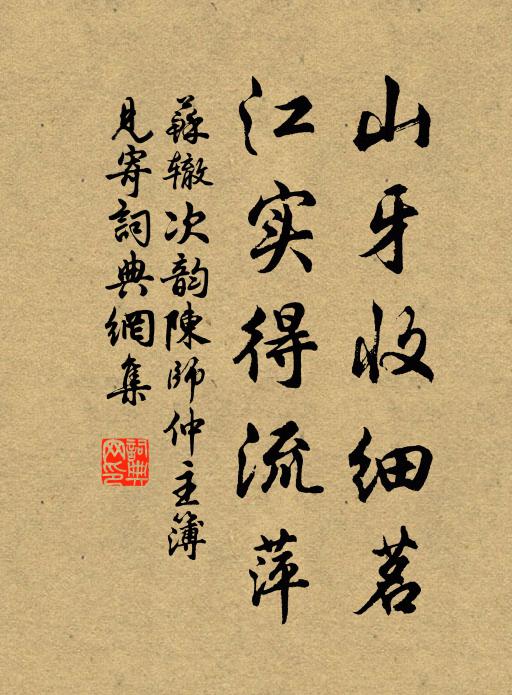 山牙收细茗
江实得流萍
蘇辙次韵陳師仲主簿
見寄詞典網集
詞典网印